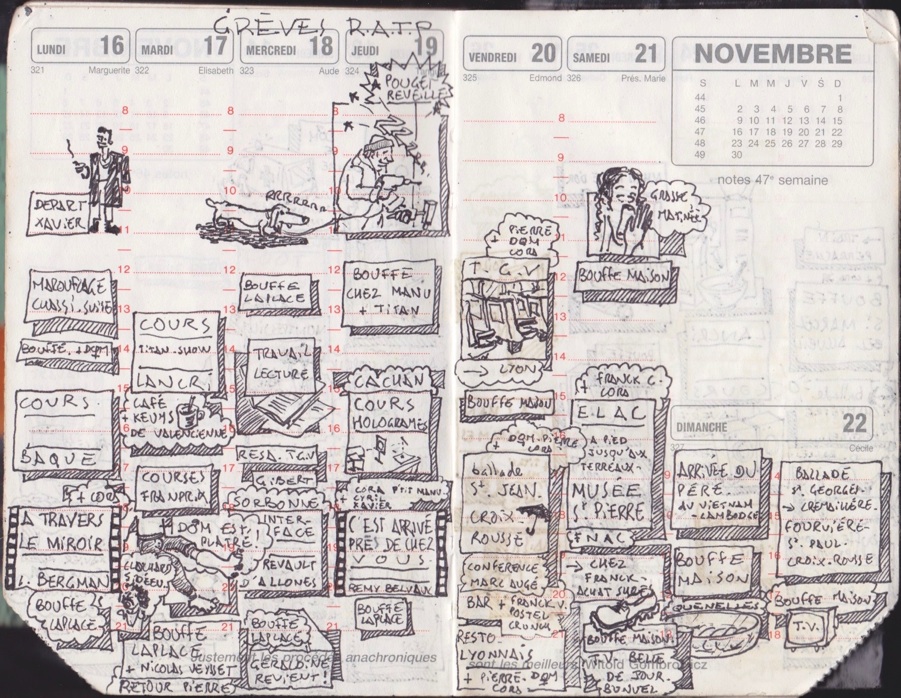 GRÈVES R.A.T.P
LUNDI 16
321 Marguerite
8
9
10
11
DEPART
XAVIER
12
MAROUFLAGE
CHASSI. SUITE
13
BOUFFE. + DOM
14
15
COURS
BAQUE
17
+ CORA
A TRAVERS
LE MIROIR
I. BERGMAN
BOUFFE
LAPLACE
21
MARDI 17
322 Elisabeth
8
9
10
11
12
13
COURS
TITAN. SHOW
LANCRI
CAFÉ
+ KEUMS
DE VALENCIENNE
COURSES
FRANPRIX
DOM EST
PLATRÉ!
BOUFFE
LAPLACE
+ NICOLAS VEYDET
RETOUR PIERRE
MERCREDI 18
323 Aude
RRRRRRR
12
BOUFFE
LAPLACE
13
TRAVAIL
LECTURE
RESA. TGV
GIBERT
SORBONNE
INTER-
FACE
REVAULT
D'ALLONES
BOUFFE
LAPLACE
GERALDINE
REVIENT!
JEUDI 19
324
POUGET
REVEILLE
8
BOUFFE
CHEZ MANU
+ TITAN
CACHAN
COURS
HOLOGRAMES
CORA PTIT MANU
XAVIER
C'EST ARRIVÉ
PRÈS DE CHEZ
VOUS
REMY BELVAUX
BOUFFE
LAPLACE
VENDREDI 20
325 Edmond
8
9
10
11
+ PIERRE
DOM
CORA
12
T.G.V
13
14
→ LYON
15
BOUFFE MAISON
+ DOM. PIERRE
CORA
ballade
St JEAN.
CROIX
ROUSSE
CONFERENCE
MARC AUGÉ
BAR + FRANCK V.
RESTO
LYONNAIS
+ PIERRE. DOM
CORA
SAMEDI 21
326 Prés. Marie
GRASSE
MATINÉE
BOUFFE MAISON
+ FRANCK C.
CORA
ELAC
A PIED
JUSQU'AUX
TERREAUX
MUSÉE
St PIERRE
FNAC
→ CHEZ
FRANCK
BOUFFE MAISON
T.V. BELLE
DE JOUR
BUNUEL
NOVEMBRE
S L M M J V S D
44 1
45 2 3 4 5 6 7 8
46 9 10 11 12 13 14 15
47 16 17 18 19 20 21 22
48 23 24 25 26 27 28 29
49 30
notes 47e semaine
DIMANCHE 22
327 Cécile
ARRIVÉE DU
PÈRE
DU VIETNAM
CAMBODGE
BOUFFE
MAISON
QUENELLES
BALLADE
St GEORGES.
→ CREMAILLÈRE
FOURVIÈRE
St PAUL.
CROIX-ROUSSE
BOUFFE MAISON
T.V.
18
anachroniques
sont les meilleurs. Witold Gombrowicz